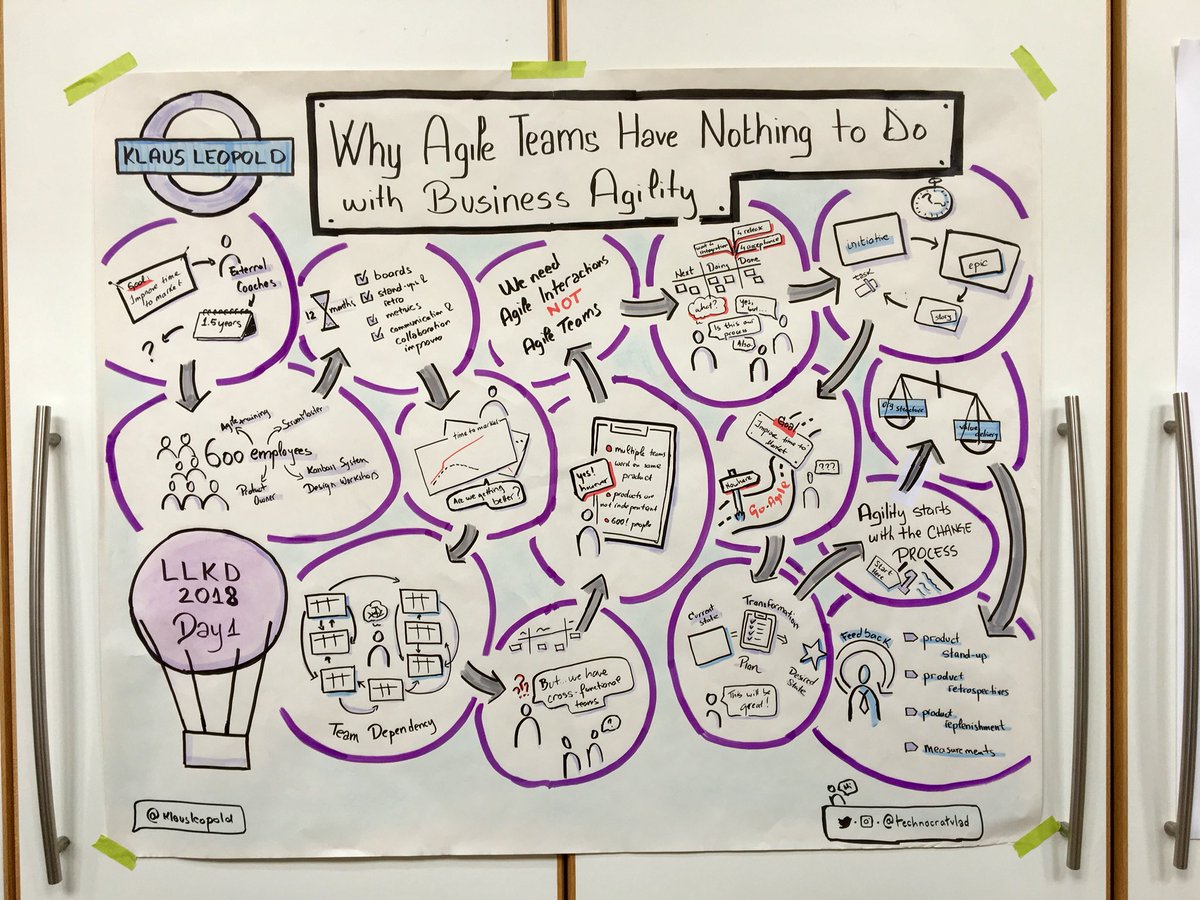 KLAUS LEOPOLD
Why Agile Teams Have Nothing to Do
with Business Agility
Goal
Improve time
to market
External
Coaches
1.5 years
?
600 employees
Agile training
ScrumMaster
Product
Owner
Kanban System
Design Workshops
12 months
boards
stand-ups &
retro
metrics
communication &
collaboration
improve
time to market
Are we getting
better?
Team Dependency
?!?
But...we have
cross-functional
teams
?
yes!
however
multiple teams
work on same
product
products are
not independent
600! people
We need
Agile Interactions
NOT
Agile Teams
wait 4
integration
4 release
4 acceptance
Next
Doing
Done
what?
yes,
but...
Is this our
process
Also
initiative
epic
story
task
Goal
Improve time to
Market
Nowhere
Go-Agile
???
Current
State
=
Transformation
Plan
Desired
State
This will be
great!
Agility starts
with the CHANGE
PROCESS
Start
Here
org structure
value
delivery
Feedback
product
stand-up
product
retrospectives
product
replenishment
measurements
LLKD
2018
Day 1
@klausleopold
Hi
@technocratvlad